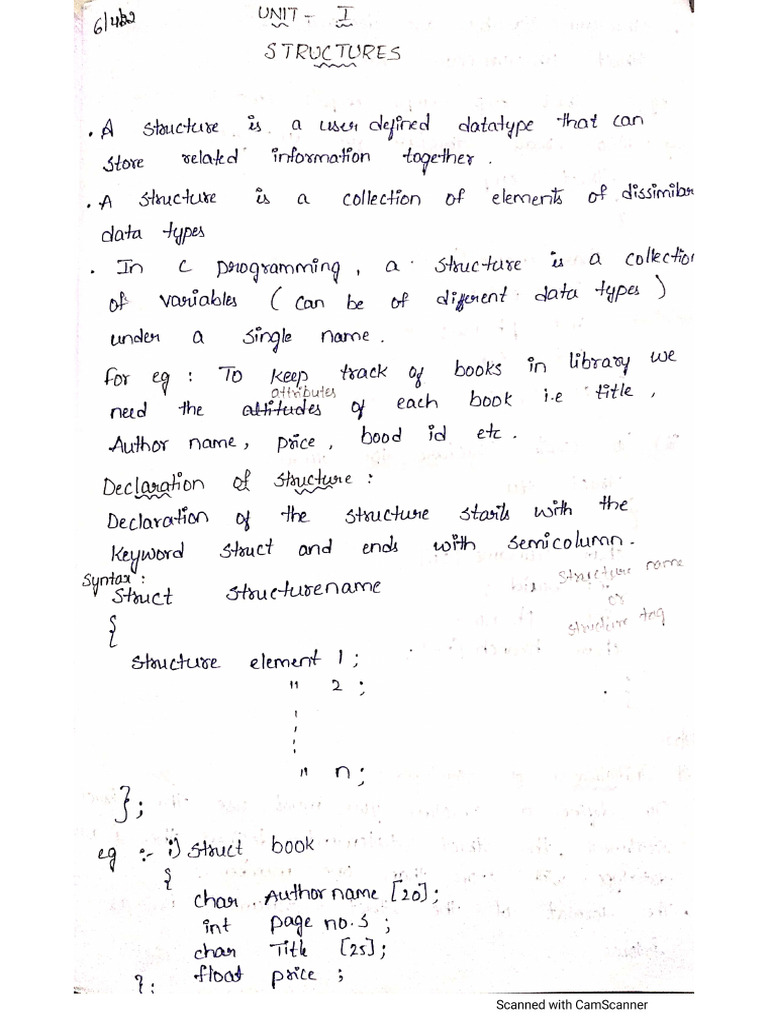 6/4/22
UNIT - I
STRUCTURES
. A structure is a user defined datatype that can
store related information together.
. A structure is a collection of elements of dissimilar
data types
. In C programming, a structure is a collection
of variables (can be of different data types)
under a single name.
for eg : To keep track of books in library we
attributes
need the attitudes of each book i.e title,
Author name, price, bood id etc.
Declaration of structure :
Declaration of the structure starts with the
keyword struct and ends with semicolumn.
Syntax :
Struct structurename
structure name
or
structure tag
{
structure element 1;
" 2 ;
" n;
};
eg :- i) struct book
{
char Author name [20];
int page no.s ;
char Title [25];
float price ;
};
Scanned with CamScanner